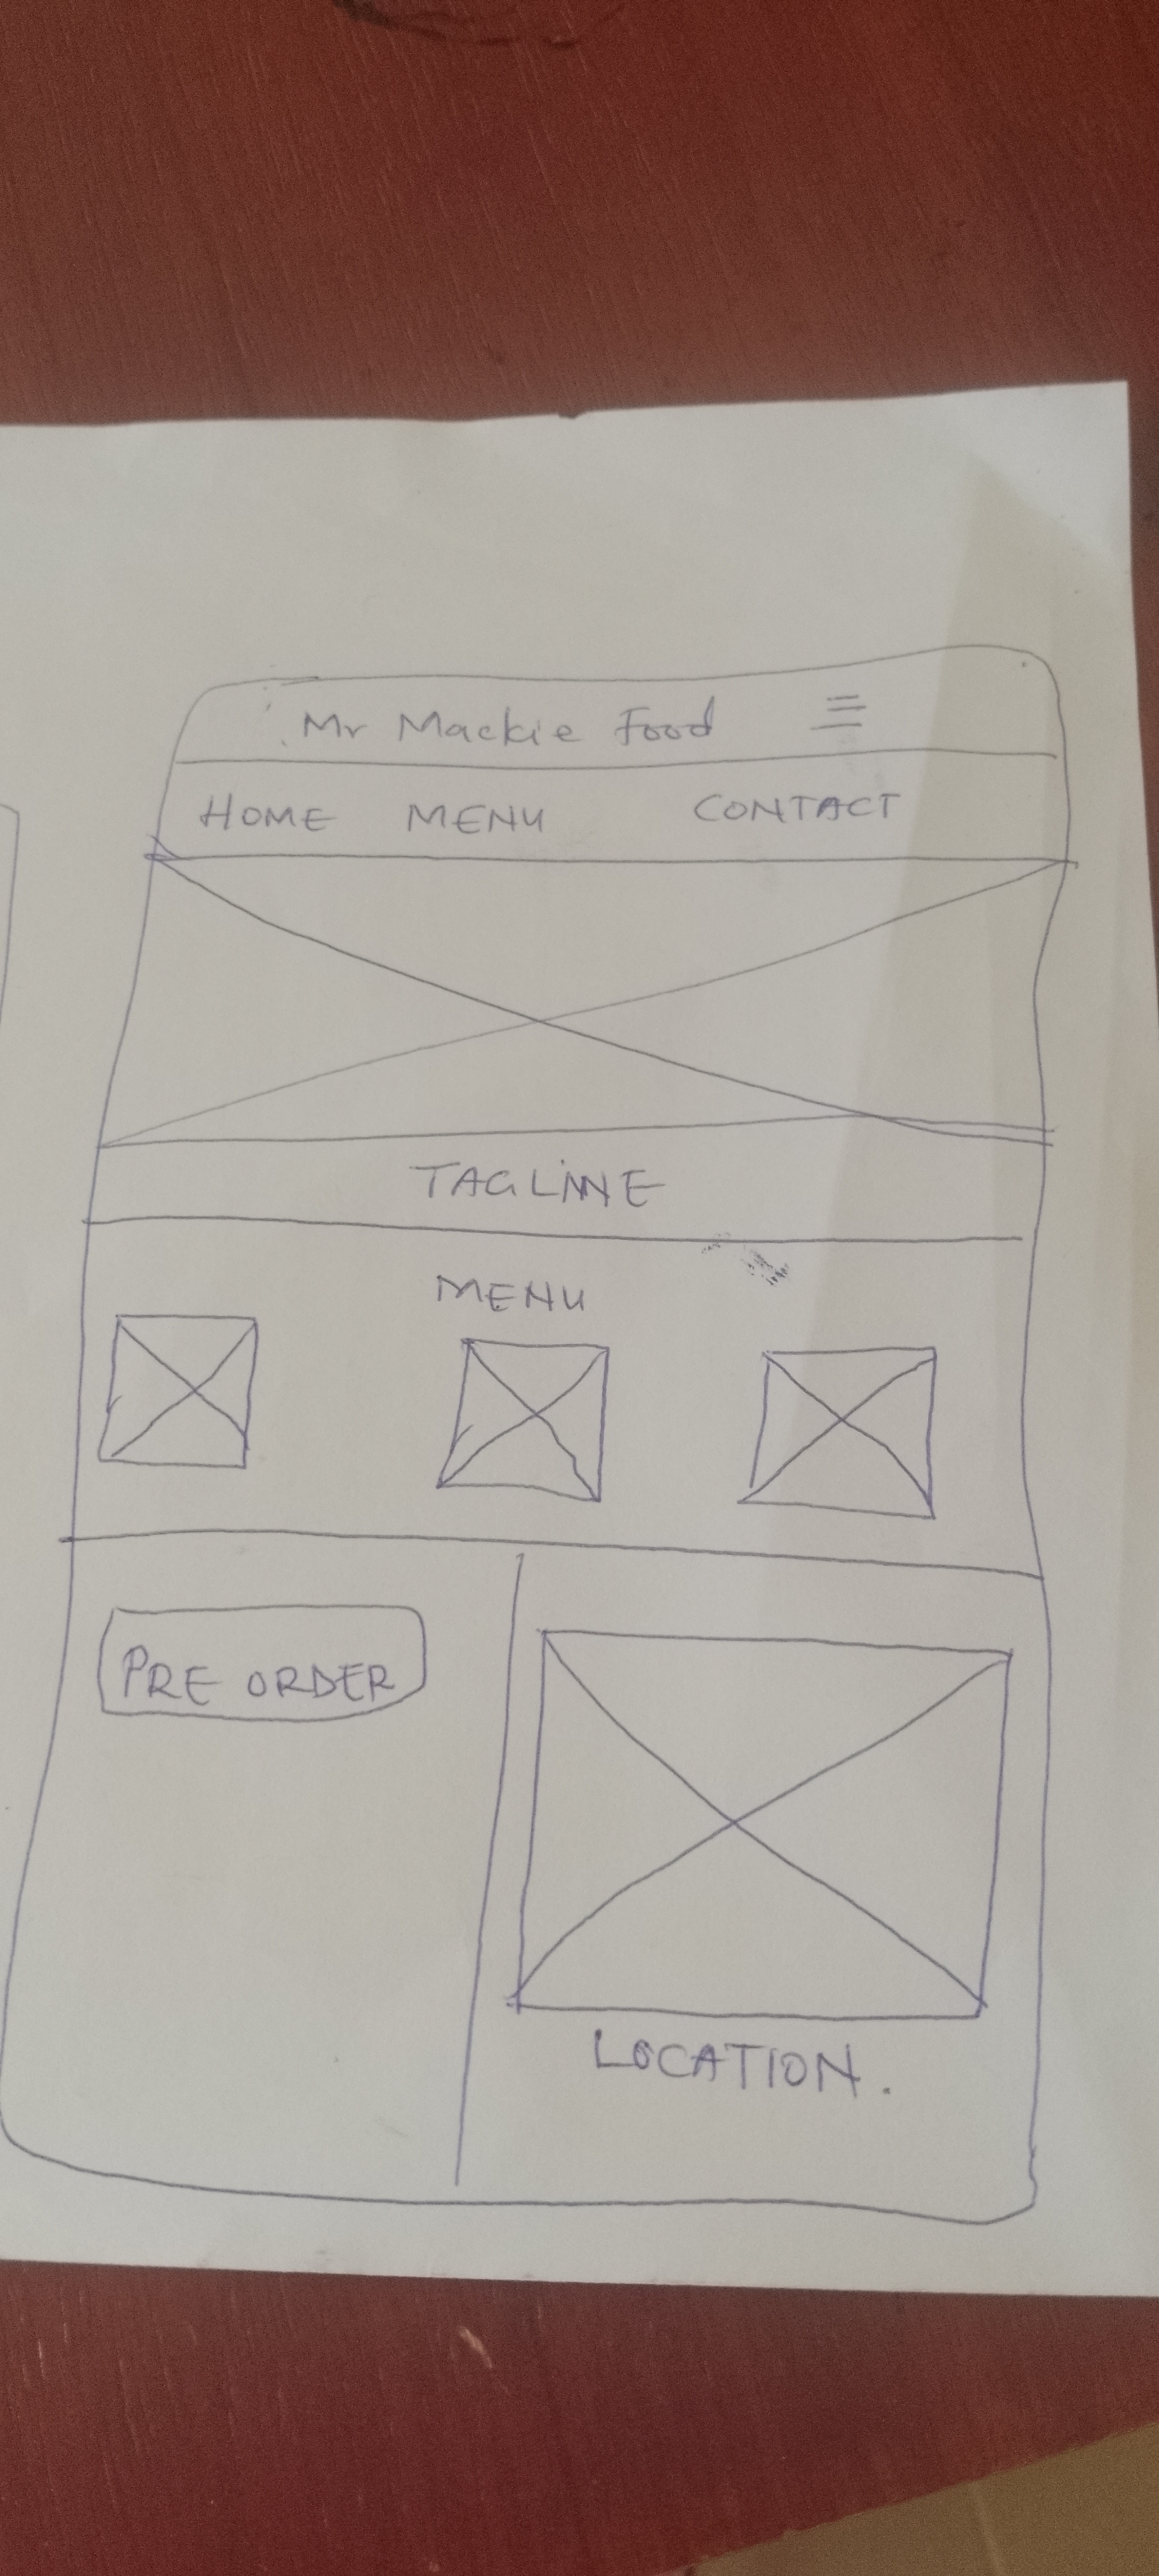 Mr Mackie Food
HOME MENU CONTACT
TAGLINE
MENU
PRE ORDER
LOCATION.